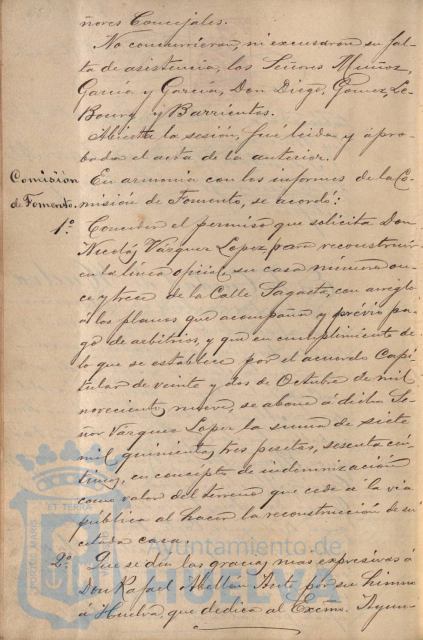 ñores Concejales.
No concurrieron, ni excusaron su fal-
ta de asistencia, los Señores Muñoz,
García y García, Don Diego, Gomez, Le
Bourg y Barrientos.
Abierta la sesión, fué leida y apro-
bada el acta de la anterior.
Comisión
de Fomento.
En armonia con los informes de la Co-
misión de Fomento, se acordó:
1º. Conceder el permiso que solicita Don
Nicolás Vázquez Lopez, para reconstruir
en la linea oficial, su casa número on-
ce y trece de la Calle Sagasta, con arreglo
á los planos que acompaña y previo pa-
go de arbitrios, y que en cumplimiento de
lo que se establece por el acuerdo Capi-
tular de veinte y dos de Octubre de mil
novecientos nueve, se abone á dicho Se-
ñor Vázquez Lopez la suma de siete
mil quinientas tres pesetas, sesenta cén-
timos, en concepto de indemnización
como valor del terreno que cede á la via
pública al hacer la reconstrucción de su
citada casa.
2º. Que se dén las gracias mas expresivas á
Don Rafael Abellán por su himno
á Huelva, que dedica al Excmo. Ayun-
PORTUS MARIS ET TERRAE
Ayuntamiento de
HUELVA